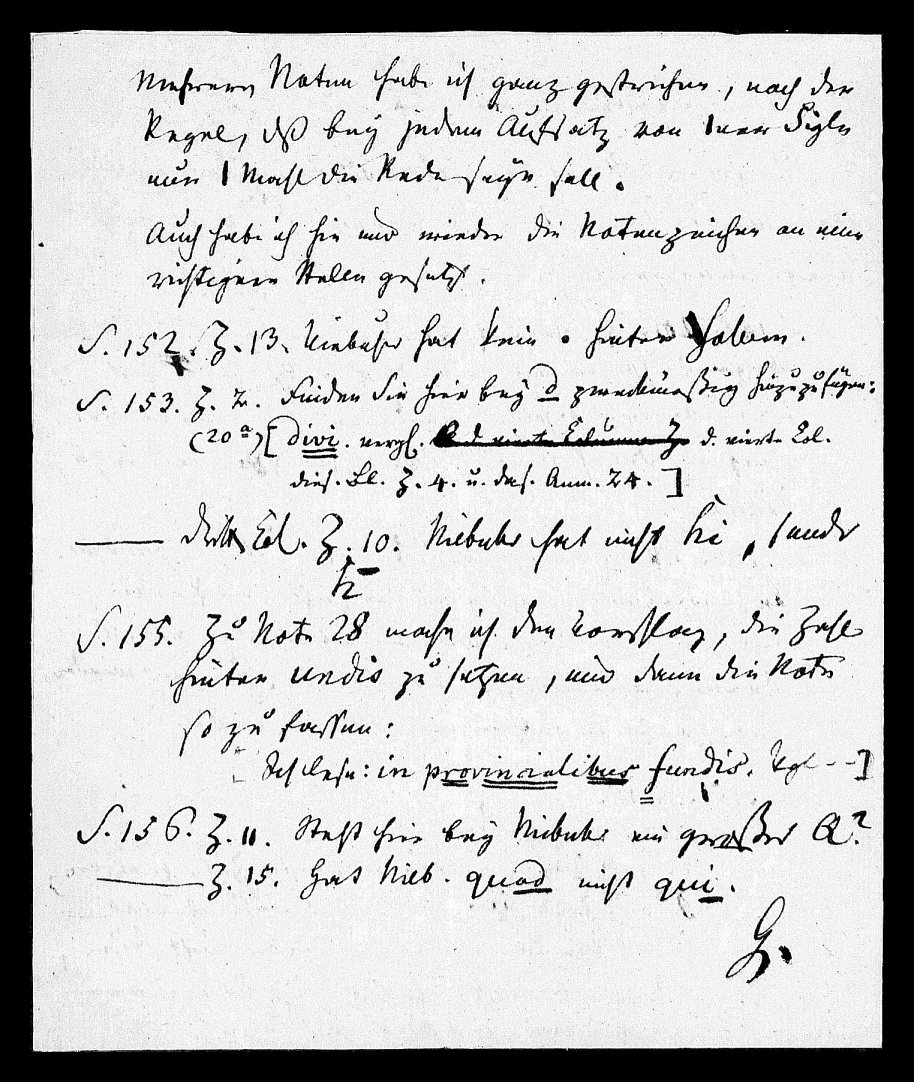 Mehrere Noten habe ich ganz gestrichen, nach der
Regel, daß bey jedem Aufsatz von 1 der Sigle
nur 1 Mahl die Rede seyn soll.
Auch habe ich hie und wieder die Notenzeichen an eine
richtigere Stelle gesetzt.
S. 152. Z. 13. Niebuhr hat kein . hinter
S. 153. Z. 2. Finden Sie hier bey d zweckmäßig hinzuzufügen:
(20a) [divi. vergl. d. vierte Col.
dies. Bl. Z. 4. u. das. Anm. 24.]
dritte Col. Z. 10. Niebuhr hat nicht hi, sondr
h
S. 155. Zu Note 28 mache ich den Vorschlag, die Zahl
hinter undis zu setzen, und dann die Note
so zu fassen:
Ich lese: in provincialibus fundis. Vgl --]
S. 156. Z. 11. Steht hier bey Niebuhr ein großes Q?
Z. 15. Hat Nieb. quod nicht qui.
G.